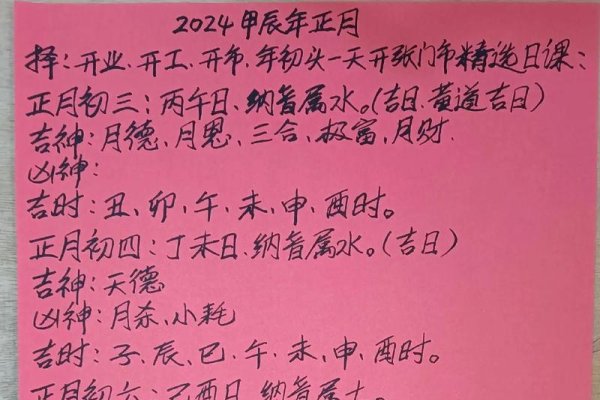 2024甲辰年正月
择:开业、开工、开市、年初头一天开张门市精选日课:
正月初三:丙午日、纳音属水。(吉日、黄道吉日)
吉神:月德、月恩、三合、极富、月财.
凶神:
吉时:丑、卯、午、未、申、酉时。
正月初四:丁未日、纳音属水。(吉日)
吉神:天德
凶神:月杀、小耗
吉时:子、辰、巳、午、未、申、酉时。
正月初六:己酉日、纳音属土。